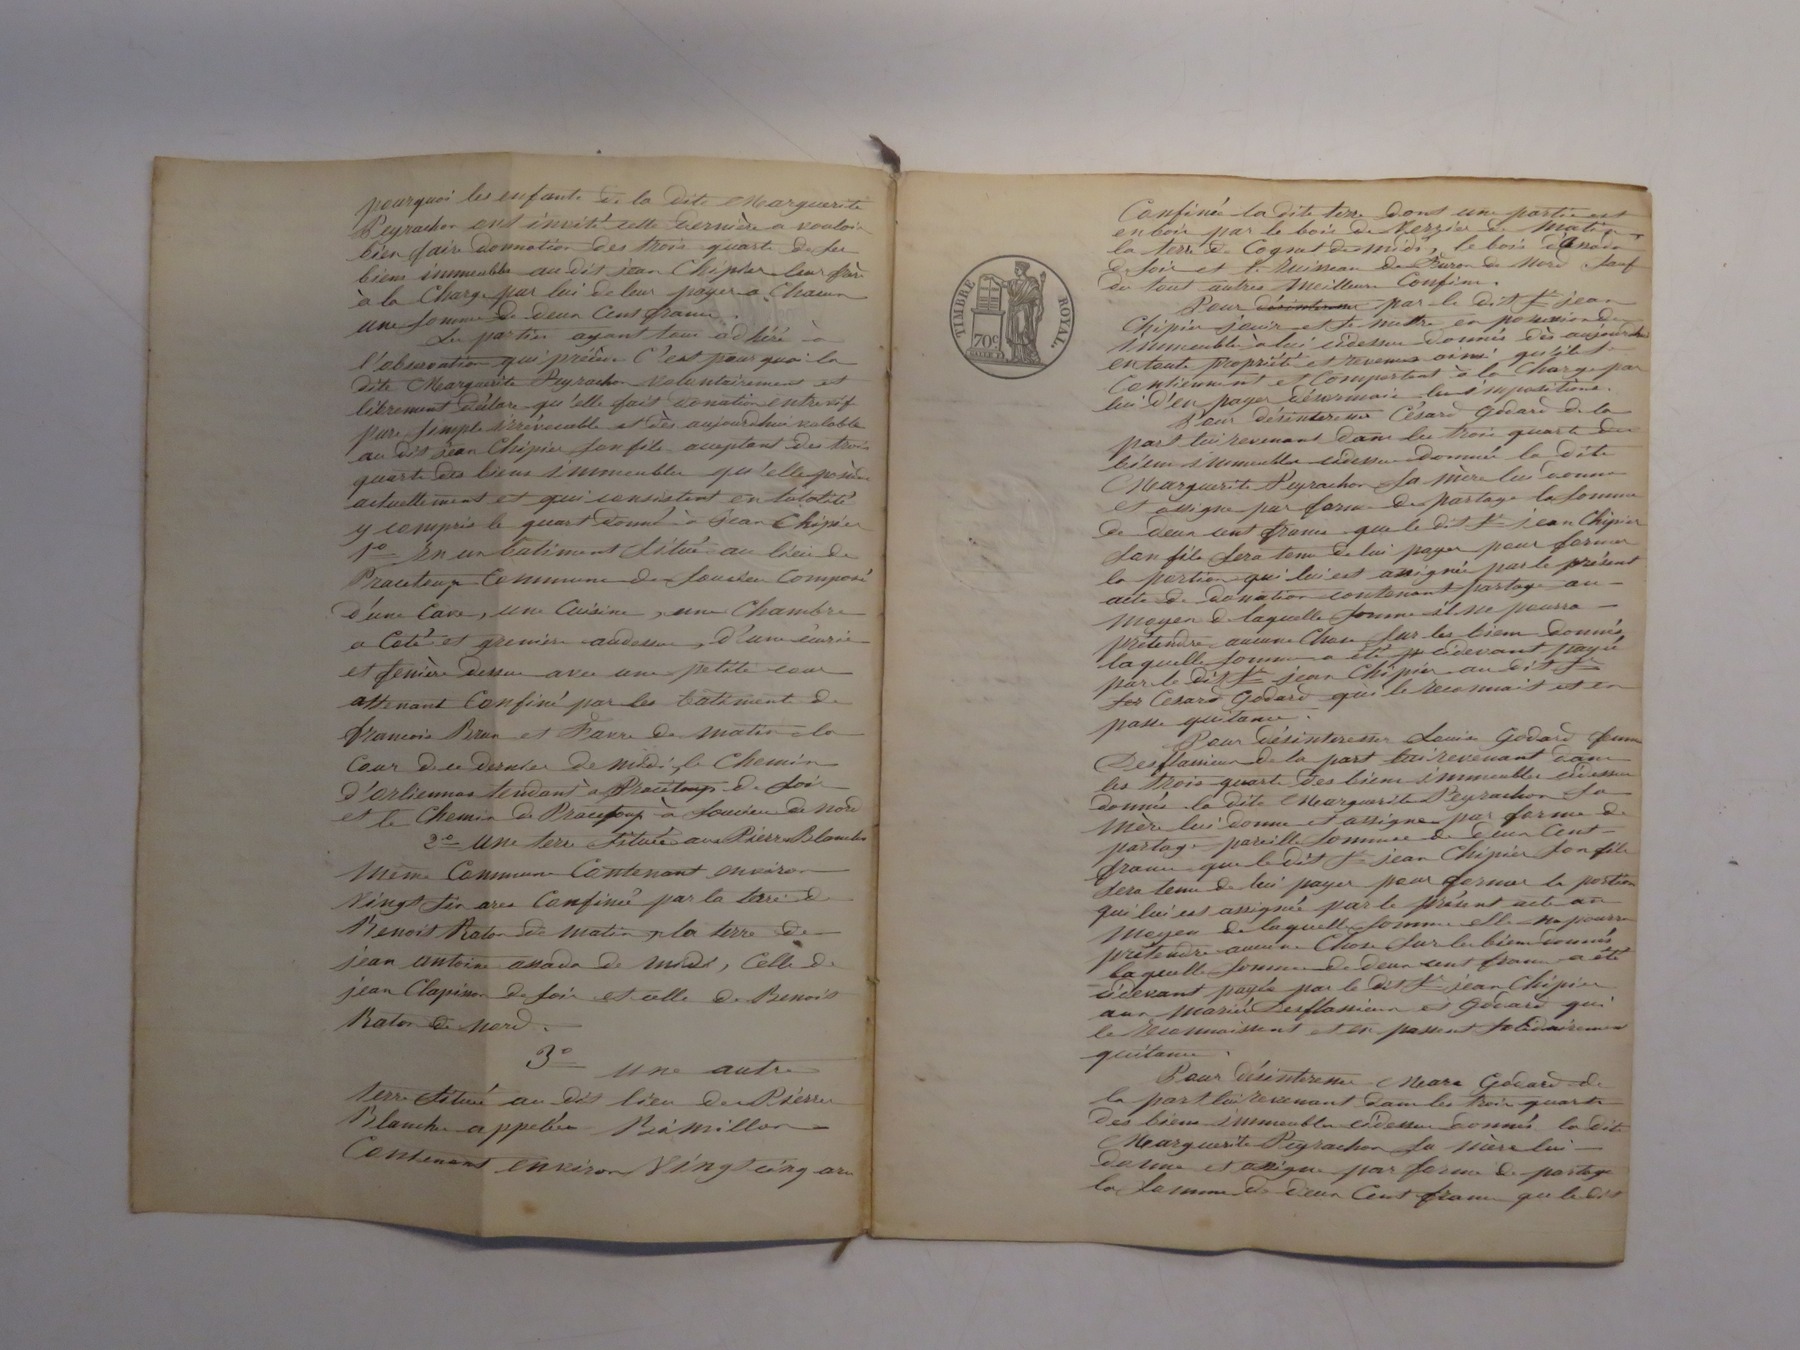 pourquoi les enfants de la dite Marguerite
Peyrachon ont invité cette dernière a vouloir
bien faire donnation des trois quarts de ses
biens immeubles au dit jean Chipier leur frère
à la Charge par lui de leur payer a Chacun
une somme de deux Cent francs.
Les parties ayant tous adhéré à
l'observation qui précède C'est pourquoi la
dite Marguerite Peyrachon volontairement et
librement déclare qu'elle fait donation entrevif
pure simple irrévocable et dès aujourdhui valable
au dit jean Chipier son fils aceptant des trois
quarts des biens immeubles qu'elle possède
actuellement et qui consistent en totalité
y compris le quart donné à jean Chipier
1° En un batiment situé au lieu de
Commune de Soucieu Composé
d'une Cave, une Cuisine, une Chambre
a Coté et greniers audessus, d'une écurie
et fenière dessus avec une petite cour
attenant Confiné par les batiments de
francois Brun et Favre de matin la
Cour de ce dernier de midi, le Chemin
d'orliennas tendant à de soir
et le Chemin de à Soucieu de nord
2° une terre située aux Pierres Blanches
même Commune Contenant environ
vingt six ares Confinée par la terre de
Benoit Raton de matin, la terre de
jean antoine assada de midi, Celle de
jean Clapisson de soir et celle de Benoit
Raton de nord.
3° une autre
terre située au dit lieu de Pierres
Blanches appelée
Contenant environ vingt cinq ares
TIMBRE ROYAL
70c
Confinée la dite terre dont une partie est
en bois par le bois de Verzier de matin
la terre de Cognat de midi, le bois d'assada
de soir et le Ruisseau de Furon de nord sauf
de tout autres meilleurs Confins.
Pour désinteresser par le dit Sr jean
Chipier jouir et se mettre en possession des
immeubles à lui cidessus donnés dès aujourdhui
en toute propriété et revenus ainsi qu'ils se
Contiennent et Comportent à la Charge par
lui d'en payer désormais les impositions.
Pour désinteresser César Godard de la
part lui revenant dans les trois quarts des
biens immeubles cidessus donnés la dite
Marguerite Peyrachon sa mère lui donne
et assigne par forme de partage la somme
de deux cent francs que le dit Sr jean Chipier
son fils sera tenu de lui payer pour former
la portion qui lui est assignée par le présent
acte de donation contenant partage au
moyen de laquelle somme il ne pourra
prétendre aucune Chose sur les biens donnés
laquelle somme a été cidevant payée
par le dit Sr jean Chipier au dit Sr
Cesard Godard qui le reconnait et en
passe quitance.
Pour désinteresser Louise Godard femme
Desflassieux de la part lui revenant dans
les trois quarts des biens immeubles cidessus
donnés la dite Marguerite Peyrachon sa
mère lui donne et assigne par forme de
partage pareille somme de deux Cent
francs que le dit Sr jean Chipier son fils
sera tenu de lui payer pour former la portion
qui lui est assignée par le présent acte au
moyen de laquelle somme elle ne pourra
prétendre aucune Chose sur les biens donnés
laquelle somme de deux cent francs a été
cidevant payée par le dit Sr jean Chipier
aux mariés Desflassieux et Godard qui
le reconnaissent et en passent solidairement
quitance.
Pour désinteresser Marc Godard de
la part lui revenant dans les trois quarts
des biens immeubles cidessus donnés la dite
Marguerite Peyrachon sa mère lui
donne et assigne par forme de partage
la somme de deux Cent francs que le dit